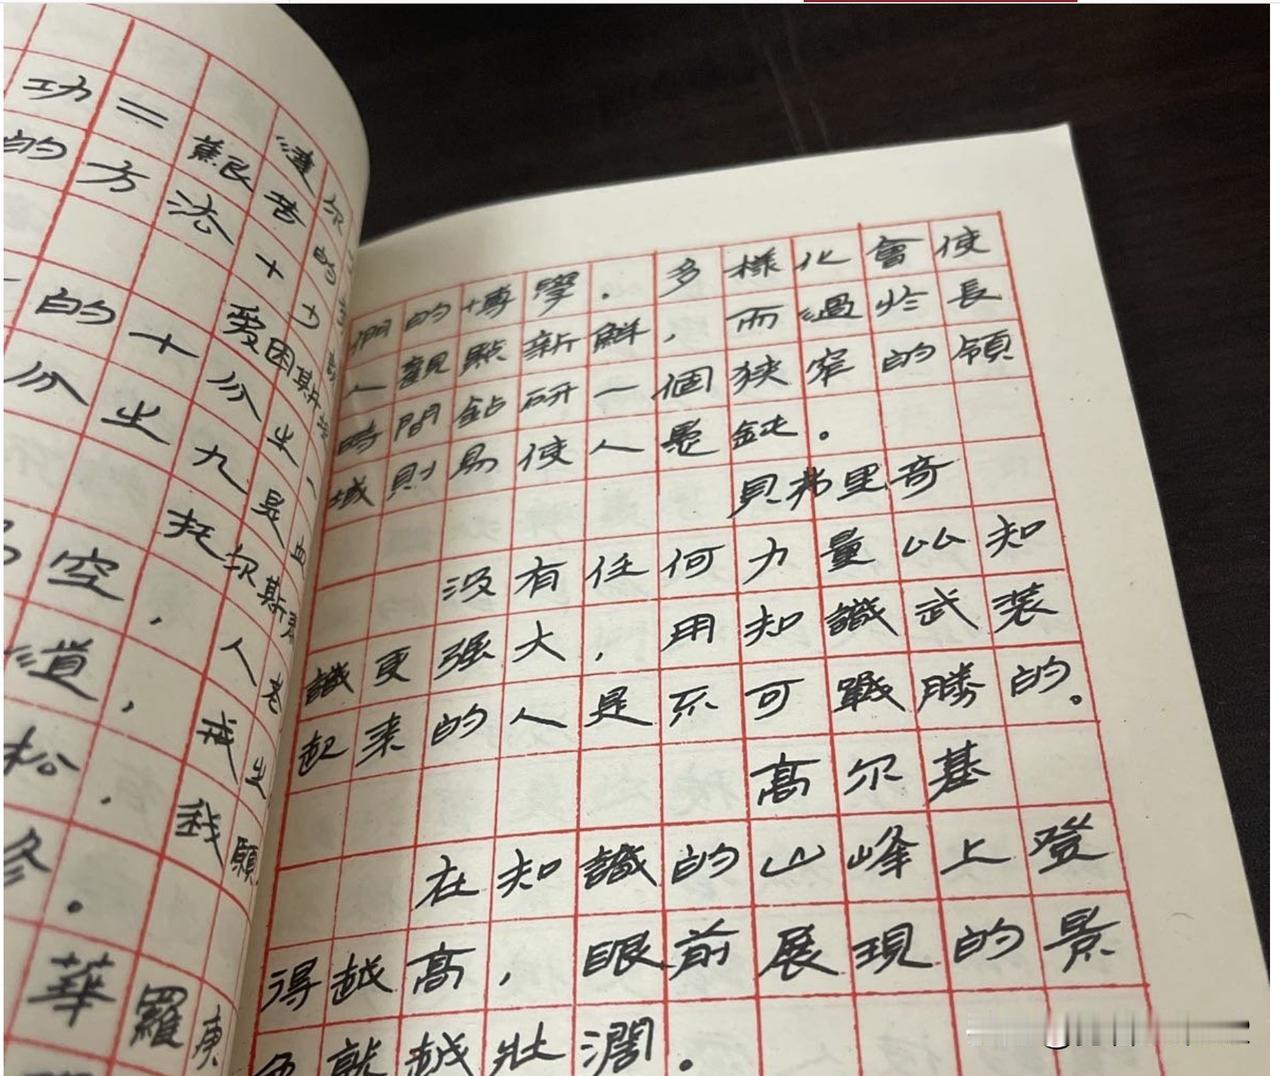 達尔
功＝艱苦的
的方法＋少
愛因斯坦
的十分之一
分之九是血
托尔斯泰
空，人老
道，戒之
松，我願
冬。
華羅庚
們的博學．多樣化會使
人觀點新鮮，而過於長
時間鉆研一個狹窄的領
域則易使人愚鈍。
貝弗里奇
沒有任何力量比知
識更强大，用知識武装
起来的人是不可戰勝的。
高尔基
在知識的山峰上登
得越高，眼前展現的景
色就越壯濶．